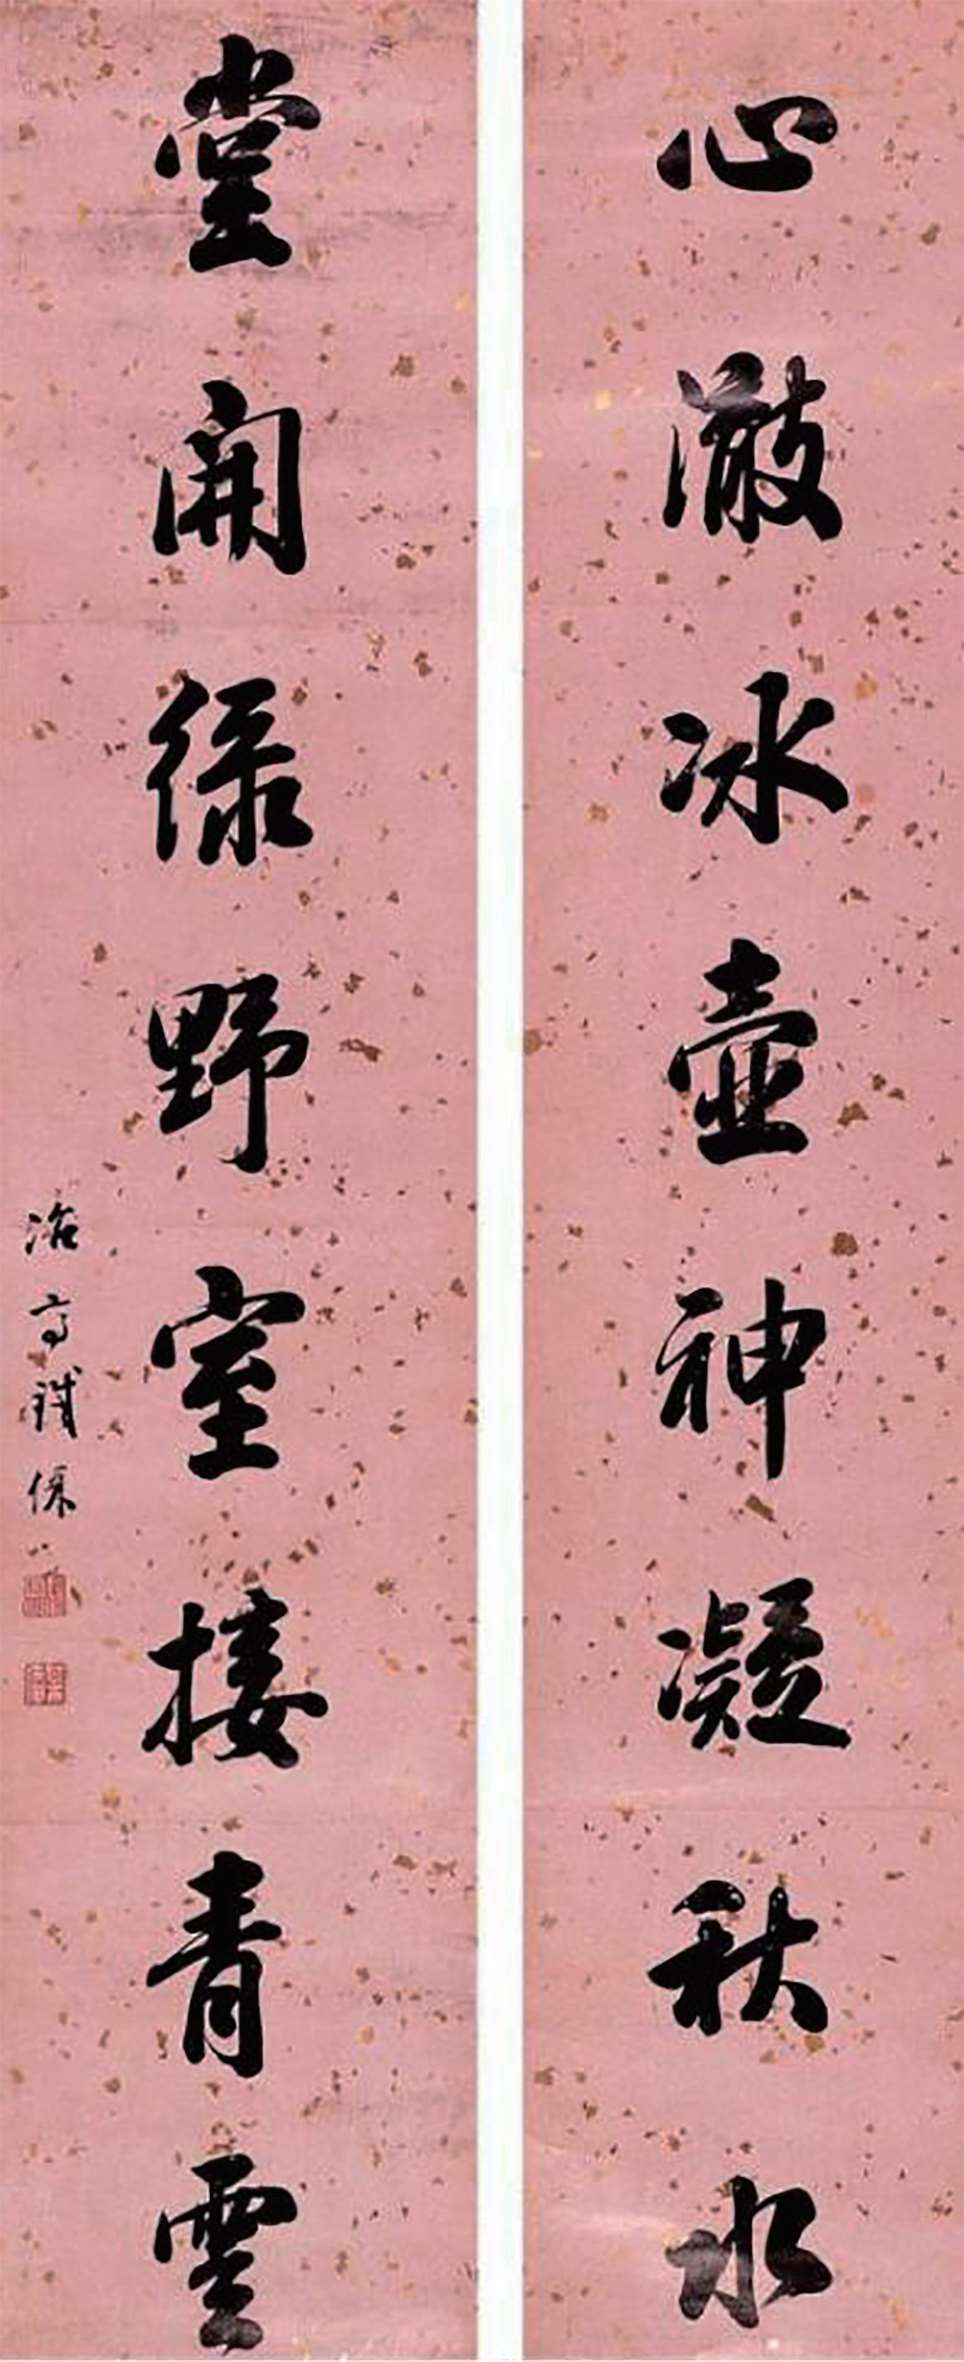 心澂冰壺神凝秋水
堂開綠野室接青雲
冶亭鐵保